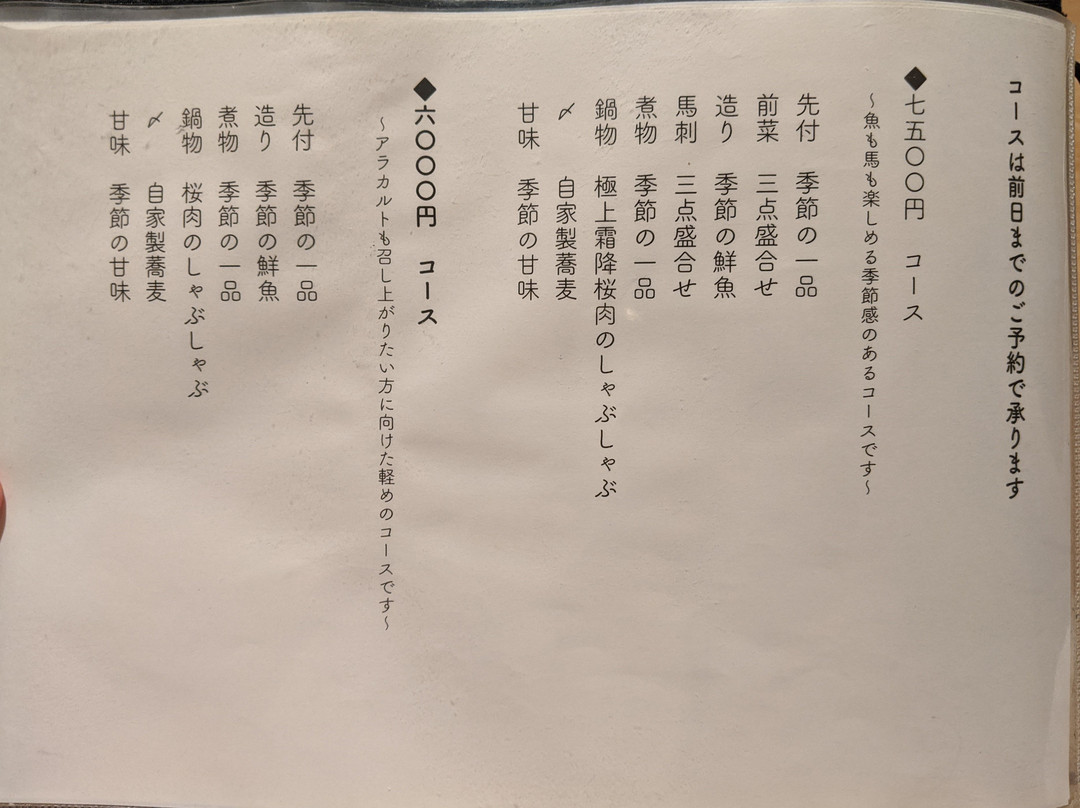 コースは前日までのご予約で承ります
◆七五〇〇円 コース
～魚も馬も楽しめる季節感のあるコースです～
先付 季節の一品
前菜 三点盛合せ
造り 季節の鮮魚
馬刺 三点盛合せ
煮物 季節の一品
鍋物 極上霜降桜肉のしゃぶしゃぶ
〆 自家製蕎麦
甘味 季節の甘味
◆六〇〇〇円 コース
～アラカルトも召し上がりたい方に向けた軽めのコースです～
先付 季節の一品
造り 季節の鮮魚
煮物 季節の一品
鍋物 桜肉のしゃぶしゃぶ
〆 自家製蕎麦
甘味 季節の甘味